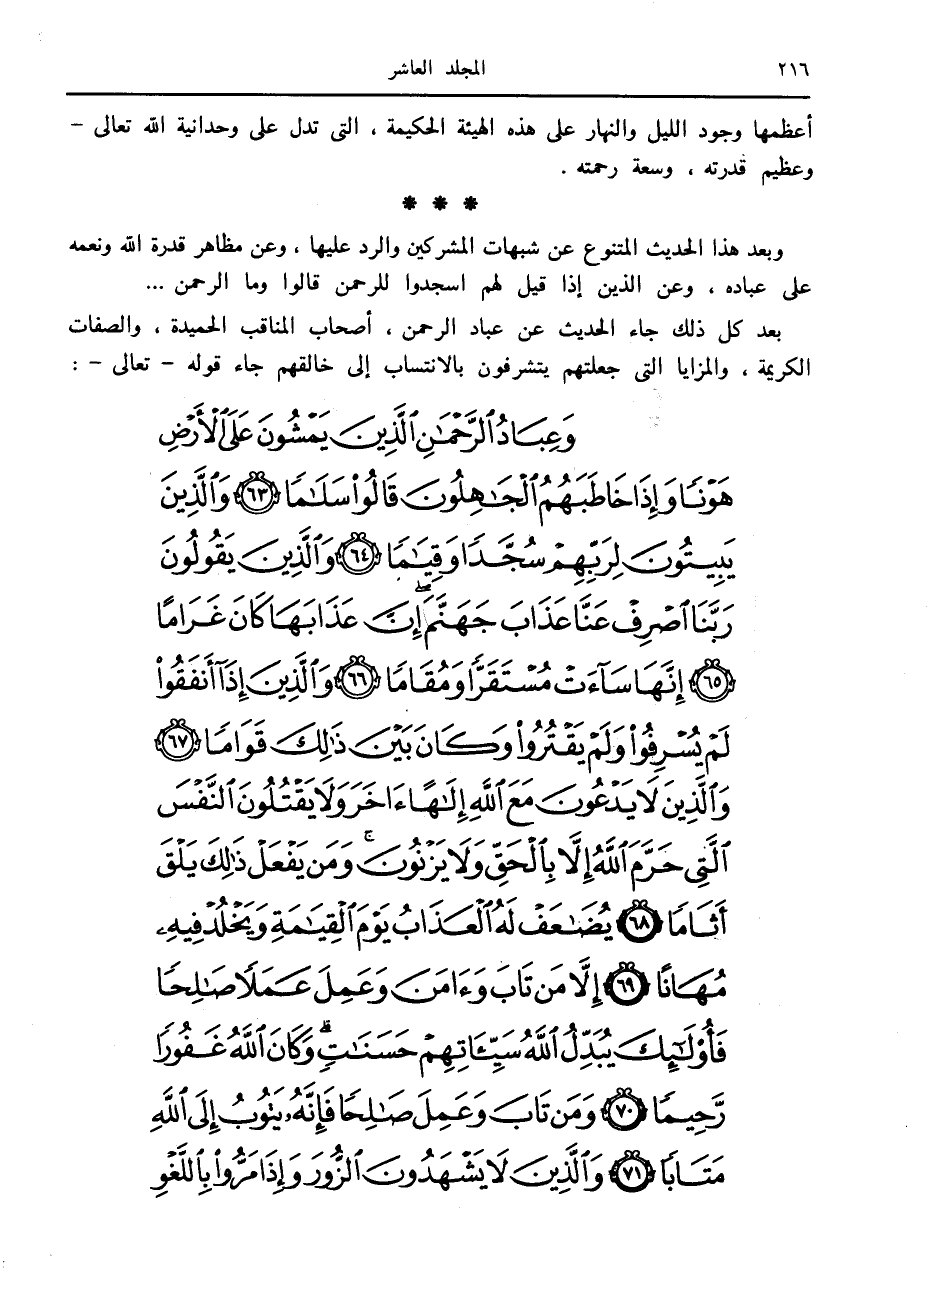 ٢١٦ المجلد العاشر
أعظمها وجود الليل والنهار على هذه الهيئة الحكيمة ، التى تدل على وحدانية الله تعالى –
وعظيم قدرته ، وسعة رحمته .
* * *
وبعد هذا الحديث المتنوع عن شبهات المشركين والرد عليها ، وعن مظاهر قدرة الله ونعمه
على عباده ، وعن الذين إذا قيل لهم اسجدوا للرحمن قالوا وما الرحمن ...
بعد كل ذلك جاء الحديث عن عباد الرحمن ، أصحاب المناقب الحميدة ، والصفات
الكريمة ، والمزايا التى جعلتهم يتشرفون بالانتساب إلى خالقهم جاء قوله – تعالى – :
وَعِبَادُ ٱلرَّحْمَٰنِ ٱلَّذِينَ يَمْشُونَ عَلَى ٱلْأَرْضِ
هَوْنًا وَإِذَا خَاطَبَهُمُ ٱلْجَٰهِلُونَ قَالُوا۟ سَلَٰمًا ٦٣ وَٱلَّذِينَ
يَبِيتُونَ لِرَبِّهِمْ سُجَّدًا وَقِيَٰمًا ٦٤ وَٱلَّذِينَ يَقُولُونَ
رَبَّنَا ٱصْرِفْ عَنَّا عَذَابَ جَهَنَّمَ ۖ إِنَّ عَذَابَهَا كَانَ غَرَامًا
٦٥ إِنَّهَا سَآءَتْ مُسْتَقَرًّا وَمُقَامًا ٦٦ وَٱلَّذِينَ إِذَآ أَنفَقُوا۟
لَمْ يُسْرِفُوا۟ وَلَمْ يَقْتُرُوا۟ وَكَانَ بَيْنَ ذَٰلِكَ قَوَامًا ٦٧
وَٱلَّذِينَ لَا يَدْعُونَ مَعَ ٱللَّهِ إِلَٰهًا ءَاخَرَ وَلَا يَقْتُلُونَ ٱلنَّفْسَ
ٱلَّتِى حَرَّمَ ٱللَّهُ إِلَّا بِٱلْحَقِّ وَلَا يَزْنُونَ ۚ وَمَن يَفْعَلْ ذَٰلِكَ يَلْقَ
أَثَامًا ٦٨ يُضَٰعَفْ لَهُ ٱلْعَذَابُ يَوْمَ ٱلْقِيَٰمَةِ وَيَخْلُدْ فِيهِۦ
مُهَانًا ٦٩ إِلَّا مَن تَابَ وَءَامَنَ وَعَمِلَ عَمَلًا صَٰلِحًا
فَأُو۟لَٰٓئِكَ يُبَدِّلُ ٱللَّهُ سَيِّـَٔاتِهِمْ حَسَنَٰتٍ ۗ وَكَانَ ٱللَّهُ غَفُورًا
رَّحِيمًا ٧٠ وَمَن تَابَ وَعَمِلَ صَٰلِحًا فَإِنَّهُۥ يَتُوبُ إِلَى ٱللَّهِ
مَتَابًا ٧١ وَٱلَّذِينَ لَا يَشْهَدُونَ ٱلزُّورَ وَإِذَا مَرُّوا۟ بِٱللَّغْوِ